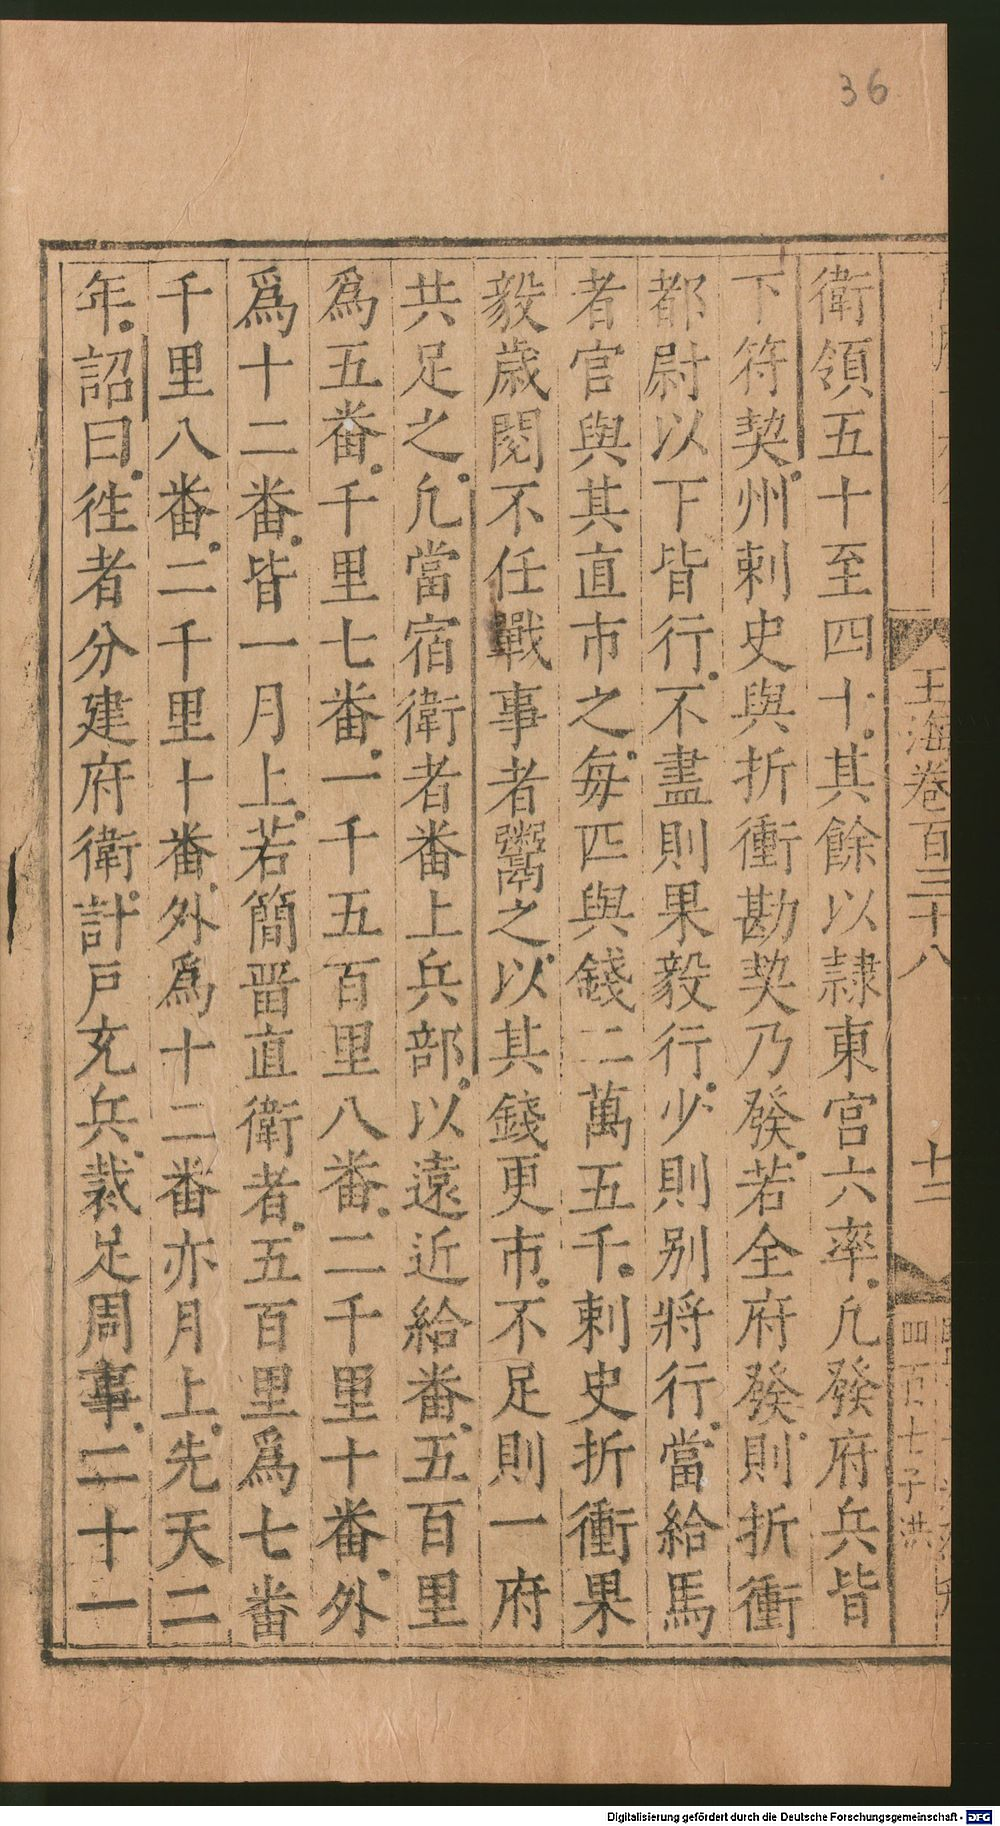 36
玉海卷百三十八
十二
四百七 子洪
衛領五十至四十其餘以隷東宮六率凢發府兵皆
下符契州刺史與折衝勘契乃發若全府發則折衝
都尉以下皆行不盡則果毅行少則别將行當給馬
者官與其直市之每匹與錢二萬五千刺史折衝果
毅歳閱不任戰事者鬻之以其錢更市不足則一府
共足之凢當宿衛者番上兵部以遠近給番五百里
爲五番千里七番一千五百里八番二千里十番外
爲十二番皆一月上若簡畱直衛者五百里爲七番
千里八番二千里十番外爲十二番亦月上先天二
年詔曰徃者分建府衛計戸充兵裁足周事二十一
Digitalisierung gefördert durch die Deutsche Forschungsgemeinschaft - DFG